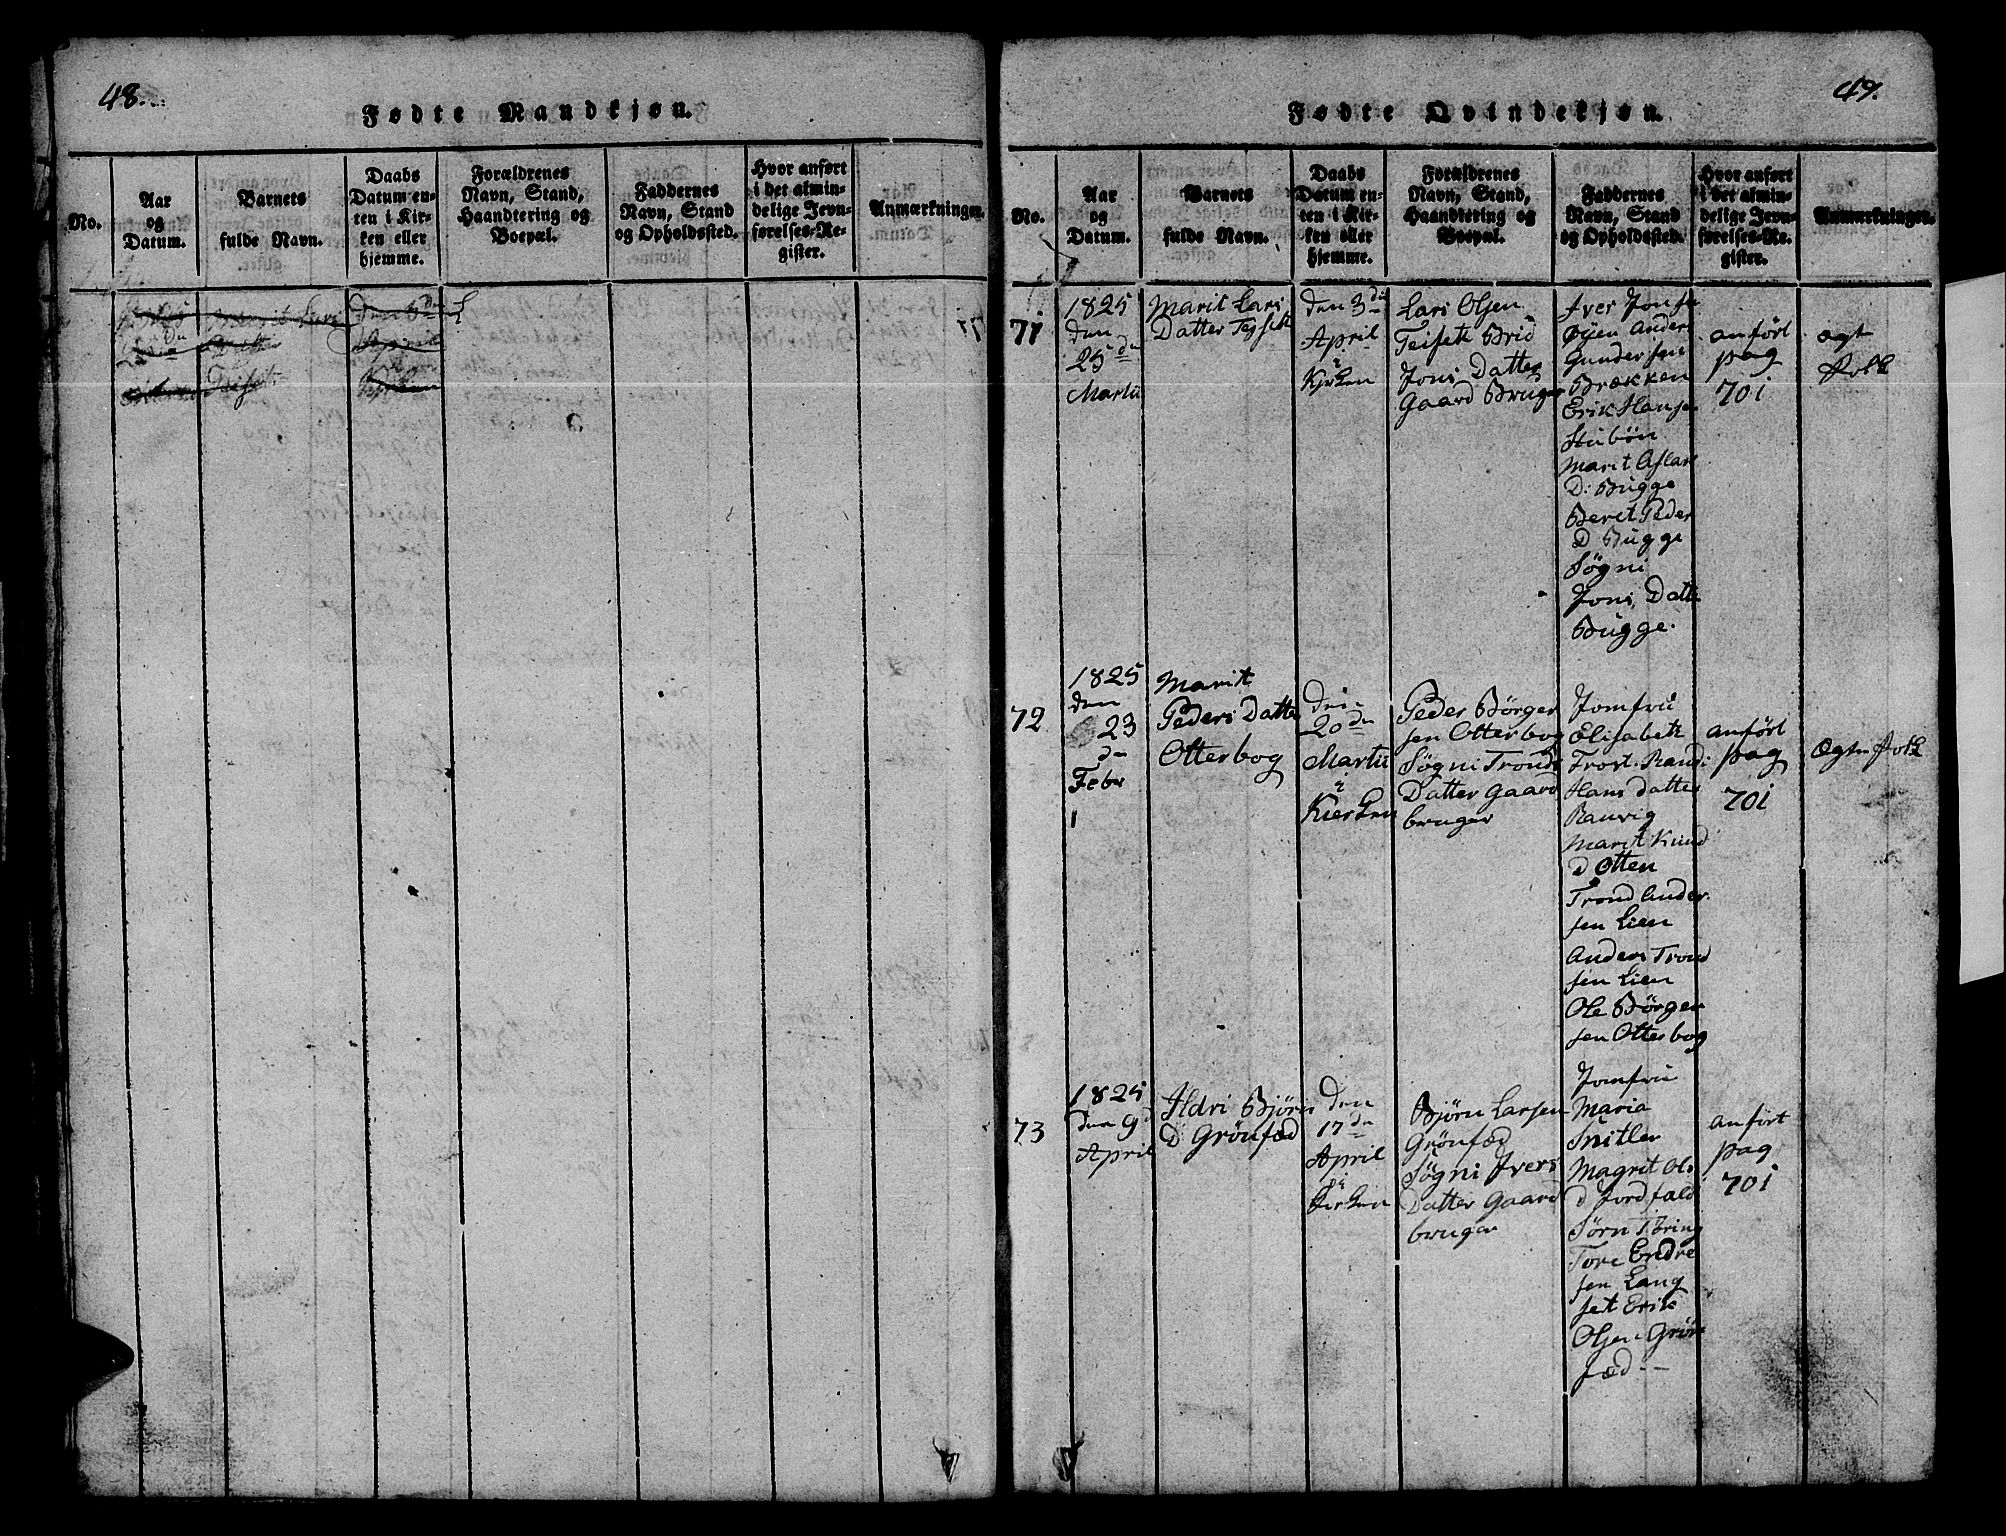 48.
Fødte Mandkjøn.
No.
Aar
og
Datum.
Barnets
fulde Navn.
Daabs
Datum en-
ten i Kir-
ken eller
hjemme.
Forældrenes
Navn, Stand,
Haandtering og
Boepæl.
Faddernes
Navn, Stand
og Opholdssted.
Hvor anført
i det almin-
delige Jevn-
førelses-Re-
gister.
Anmærkninger.
Datter
49.
Fødte Qvindekjøn.
No.
Aar
og
Datum.
Barnets
fulde Navn.
Daabs
Datum en-
ten i Kir-
ken eller
hjemme.
Forældrenes
Navn, Stand,
Haandtering og
Boepæl.
Faddernes
Navn, Stand
og Opholdssted.
Hvor anført
i det almin-
delige Jevn-
førelses-Re-
gister.
Anmærkninger.
71
1825
den
25 de
Martii
Marit Lars
Datter Tejset
den 3 die
April
Kjrken
Lars Olsen
Teiset Brid
Jons Datter
Gaard Bruger
Iver Jonse
Øyen Anders
Gundersen
Brækken
Erik Hanse
Stubøn
Marit Aslak
D: Bugge
Beret Peder
D Bugge
Søgni
Jons Datte
Bugge.
anført
pag
701
ægt
Folk
72
1825
den
23
de
Febr
Marit
Peders Datter
Otterbog
den
20 de
Martii
i
Kierken
Peder Børger
sen Otterbog
Søgni Tronds
Datter Gaard
bruger
Jomfru
Elisabeth
Frost. Randi
Hans datter
Ranvig
Marit Knud
D Otten
Trond Ander
sen Lien
Anders Trond
sen Lien
Ole Børger
sen Otterbog
anført
pag
701
Ægte Folk
73
1825
den 9 d
April
Ildri Bjørns
D Grönfæd
den
17 de
April
i
Kirken
Bjørn Larsen
Grönfæd
Søgni Ivers
Datter Gaard
bruger
Jomfru
Maria
Snitler
Magrit Ols
D Jordfald
Sørn Tøring
Tore Endre
sen Lang
set Erik
Olsen Grön
fæd
anført
pag
701